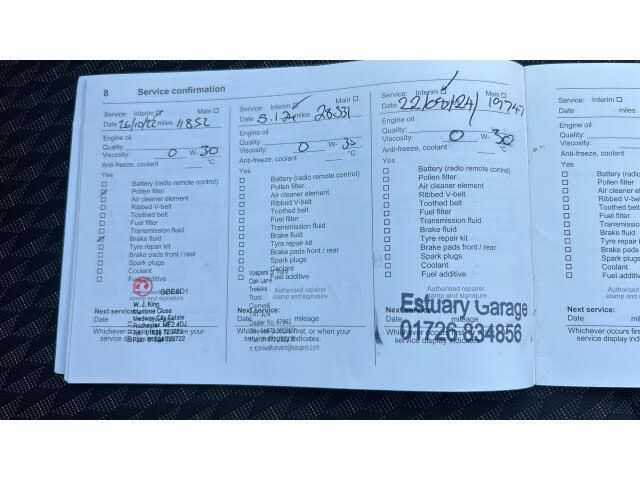 8 Service confirmation
Service: Interim Main
Date 26/10/22 miles 11852
Engine oil
Quality:
Viscosity: 0 W- 30
Anti-freeze, coolant °C
Yes
Battery (radio remote control)
Pollen filter
Air cleaner element
Ribbed V-belt
Toothed belt
Fuel filter
Transmission fluid
Brake fluid
Tyre repair kit
Brake pads front / rear
Spark plugs
Coolant
Fuel additive
stamp and signature
W. J. King
Maritime Close
Medway City Estate
Rochester ME2 4DJ
Next service:
Date
Whichever occurs first, or when your
service display indicates.
Service: Interim Main
Date 5.1.24 miles 28331
Engine oil
Quality:
Viscosity: 0 W- 30
Anti-freeze, coolant °C
Yes
Battery (radio remote control)
Pollen filter
Air cleaner element
Ribbed V-belt
Toothed belt
Fuel filter
Transmission fluid
Brake fluid
Tyre repair kit
Brake pads front / rear
Spark plugs
Coolant
Fuel additive
Authorised repairer
stamp and signature
Vospers of Truro
Oak Lane
Truro
Cornwall
Dealer No:
Next service:
Date mileage
Whichever occurs first, or when your
service display indicates.
Service: Interim Main
Date miles
Engine oil
Quality:
Viscosity: 0 W- 30
Anti-freeze, coolant °C
Yes
Battery (radio remote control)
Pollen filter
Air cleaner element
Ribbed V-belt
Toothed belt
Fuel filter
Transmission fluid
Brake fluid
Tyre repair kit
Brake pads front / rear
Spark plugs
Coolant
Fuel additive
Authorised repairer
stamp and signature
Estuary Garage
01726 834856
Next service:
Date mileage
Whichever occurs first, or when your
service display indicates.
Service: Interim
Date miles
Engine oil
Quality:
Viscosity:
Anti-freeze, coolant
Yes
Battery (radio
Pollen filter
Air cleaner element
Ribbed V-belt
Toothed belt
Fuel filter
Transmission
Brake fluid
Tyre repair kit
Brake pads
Spark plugs
Coolant
Fuel additive
Authorised
stamp and
Next service:
Date
Whichever occurs firs
service display indi